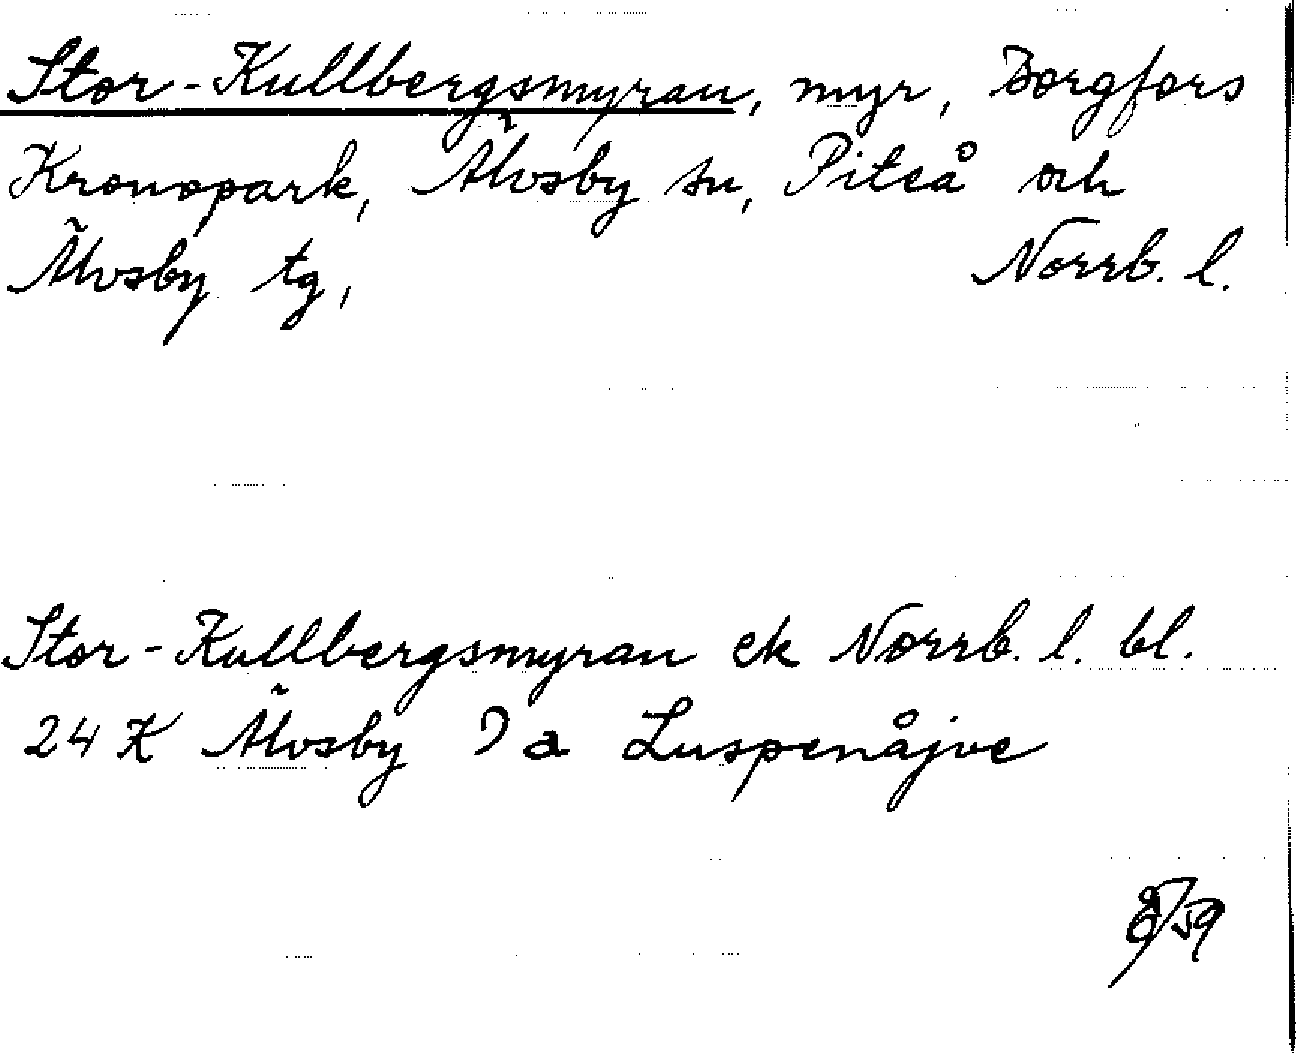 Stor-Kullbergsmyran, myr, Borgfors
Kronopark, Älvsby sn, Piteå och
Älvsby tg, Norrb. l.
Stor-Kullbergsmyran ek Norrb. l. bl.
24 K Älvsby 9 a Luspenåjve